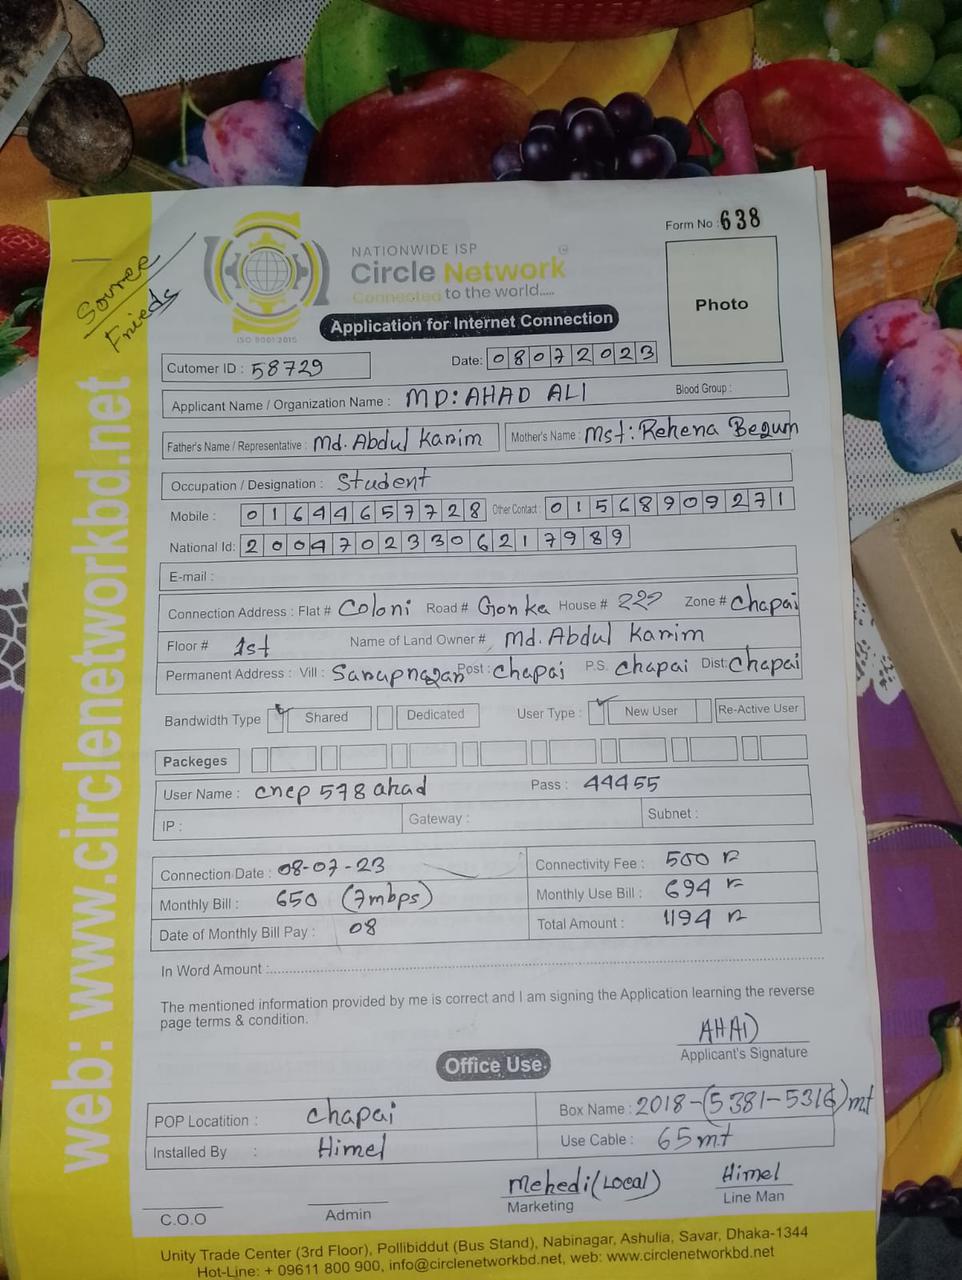 Source
Frieds
Form No : 638
NATIONWIDE ISP
Circle Network
Connected to the world.....
ISO 9001:2015
Application for Internet Connection
Photo
Cutomer ID : 58729
Date: 08072023
Applicant Name / Organization Name : MD: AHAD ALI Blood Group :
Father's Name / Representative : Md. Abdul Karim Mother's Name : Mst: Rehena Begum
Occupation / Designation : Student
Mobile : 01644657728 Other Contact : 01568909271
National Id: 20047023306217989
E-mail :
Connection Address : Flat # Coloni Road # Gonka House # 222 Zone # Chapai
Floor # 1st Name of Land Owner # Md. Abdul Karim
Permanent Address : Vill : Sarupnagar Post : Chapai P.S. Chapai Dist: Chapai
Bandwidth Type Shared Dedicated User Type : New User Re-Active User
Packeges
User Name : cncp 578 ahad Pass : 44455
IP : Gateway : Subnet :
Connection Date : 08-07-23 Connectivity Fee : 500
Monthly Bill : 650 (7mbps) Monthly Use Bill : 694
Date of Monthly Bill Pay : 08 Total Amount : 1194
In Word Amount :
The mentioned information provided by me is correct and I am signing the Application learning the reverse
page terms & condition.
AHAD
Applicant's Signature
Office Use
POP Locatition : Chapai Box Name : 2018-(5381-5316)mt
Installed By : Himel Use Cable : 65mt
Mehedi (Local) Himel
C.O.O Admin Marketing Line Man
Unity Trade Center (3rd Floor), Pollibiddut (Bus Stand), Nabinagar, Ashulia, Savar, Dhaka-1344
Hot-Line: + 09611 800 900, info@circlenetworkbd.net, web: www.circlenetworkbd.net
web: www.circlenetworkbd.net